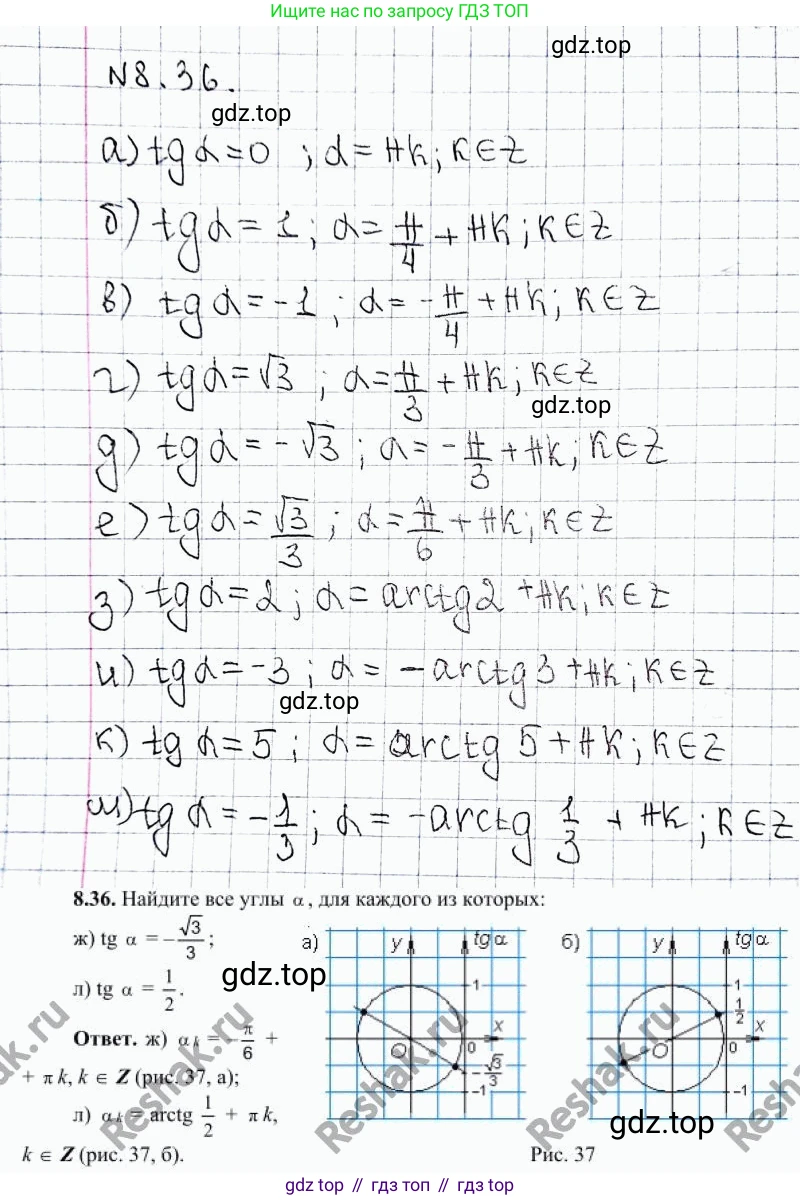 Ищите нас по запросу ГДЗ ТОП
gdz.top
N8.36.
gdz.top
а) tg α = 0 ; α = πk; k ∈ Z
б) tg α = 1; α = π/4 + πk; k ∈ Z
в) tg α = -1; α = -π/4 + πk; k ∈ Z
г) tg α = √3 ; α = π/3 + πk; k ∈ Z
gdz.top
д) tg α = -√3; α = -π/3 + πk; k ∈ Z
е) tg α = √3/3; α = π/6 + πk; k ∈ Z
з) tg α = 2; α = arctg 2 + πk; k ∈ Z
и) tg α = -3; α = -arctg 3 + πk; k ∈ Z
gdz.top
к) tg α = 5; α = arctg 5 + πk; k ∈ Z
м) tg α = -1/3; α = -arctg 1/3 + πk; k ∈ Z
8.36. Найдите все углы α, для каждого из которых:
ж) tg α = -√3/3;
л) tg α = 1/2.
gdz.top
Ответ. ж) αk = -π/6 +
+ πk, k ∈ Z (рис. 37, а);
л) αk = arctg 1/2 + πk,
k ∈ Z (рис. 37, б).
а) y tg α
1
x
O 0
-√3/3
-1
б) y tg α
1
1/2
x
O 0
-1
gdz.top
Рис. 37
Reshak.ru
Reshak.ru
Reshak.ru
Reshak.ru
gdz.top | гдз топ | gdz top